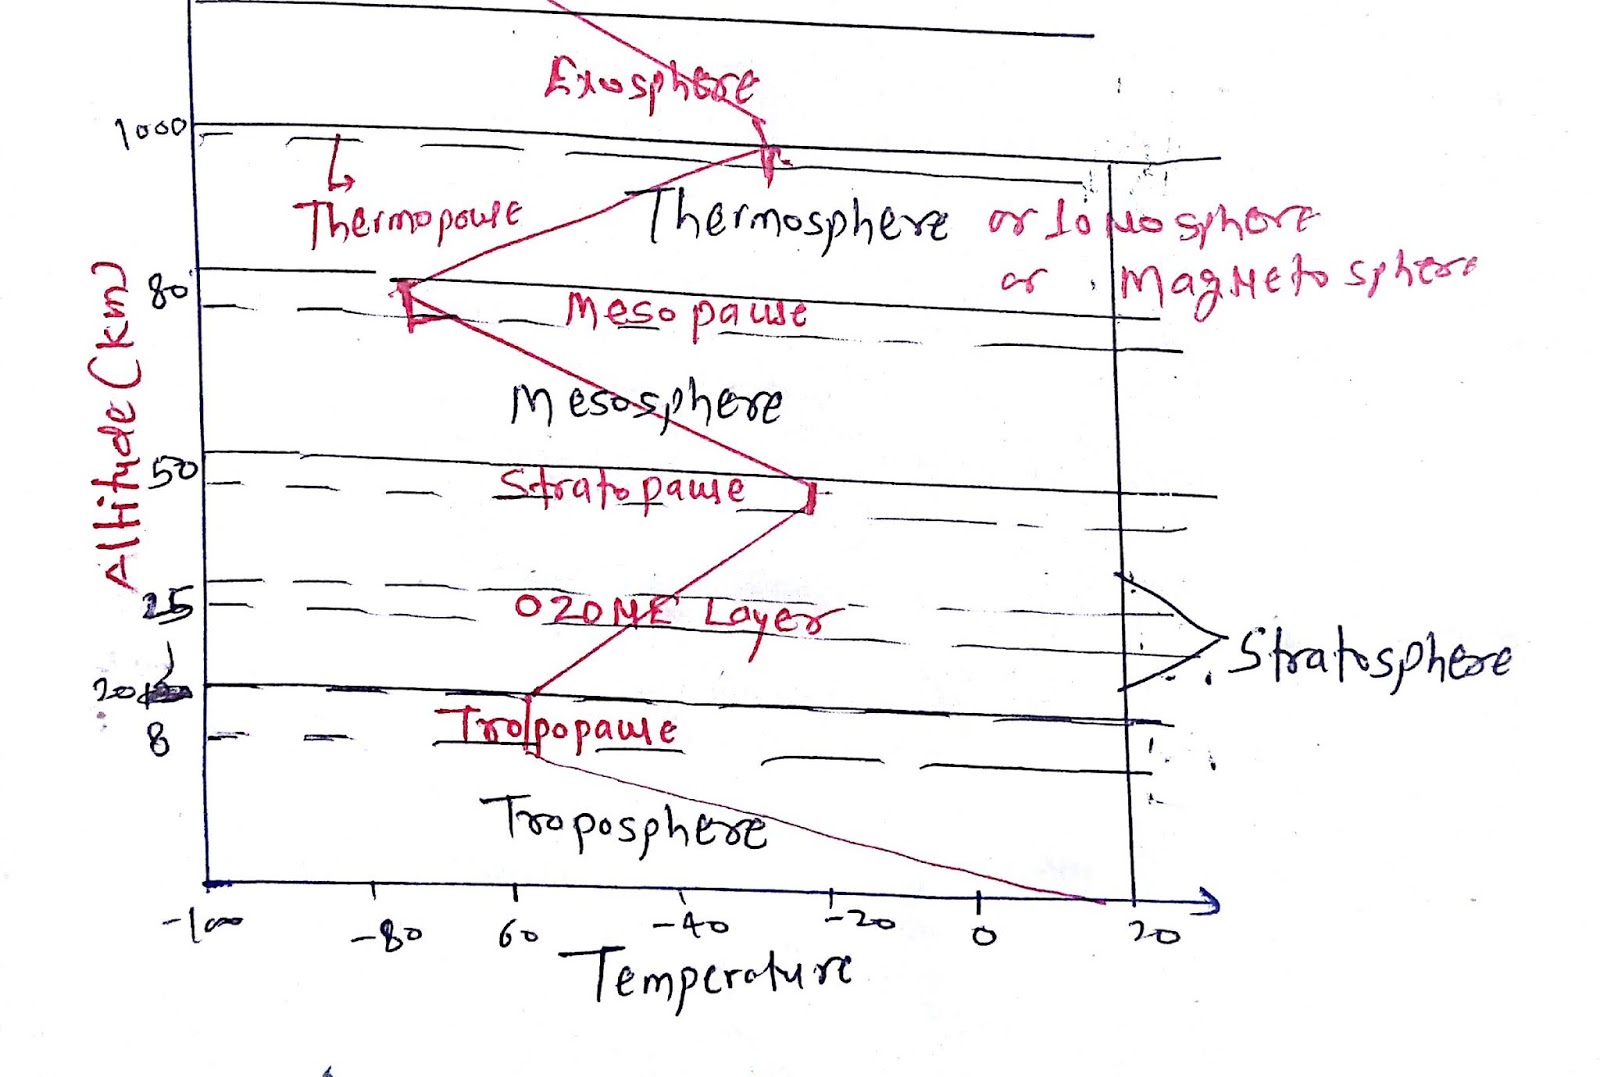 Exosphere
1000
Thermopause
Thermosphere or Ionosphere
or Magnetosphere
80
Mesopause
Mesosphere
50
Stratopause
Altitude (km)
25
OZONE Layer
Stratosphere
20
Tropopause
8
Troposphere
-100
-80
60
-40
-20
0
20
Temperature